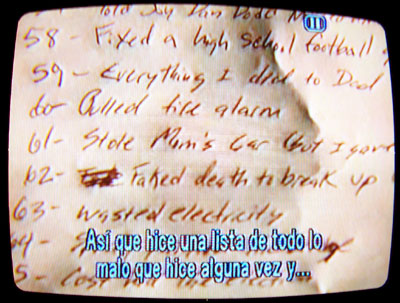 told Joy Dodge
58 - Fixed a high school football
59 - Everything I did to Dad
60 - Pulled fire alarm
61 - Stole Mom's Car (but I gave
62 - Faked death to break up
63 - wasted electricity
of
Así que hice una lista de todo lo
malo que hice alguna vez y...